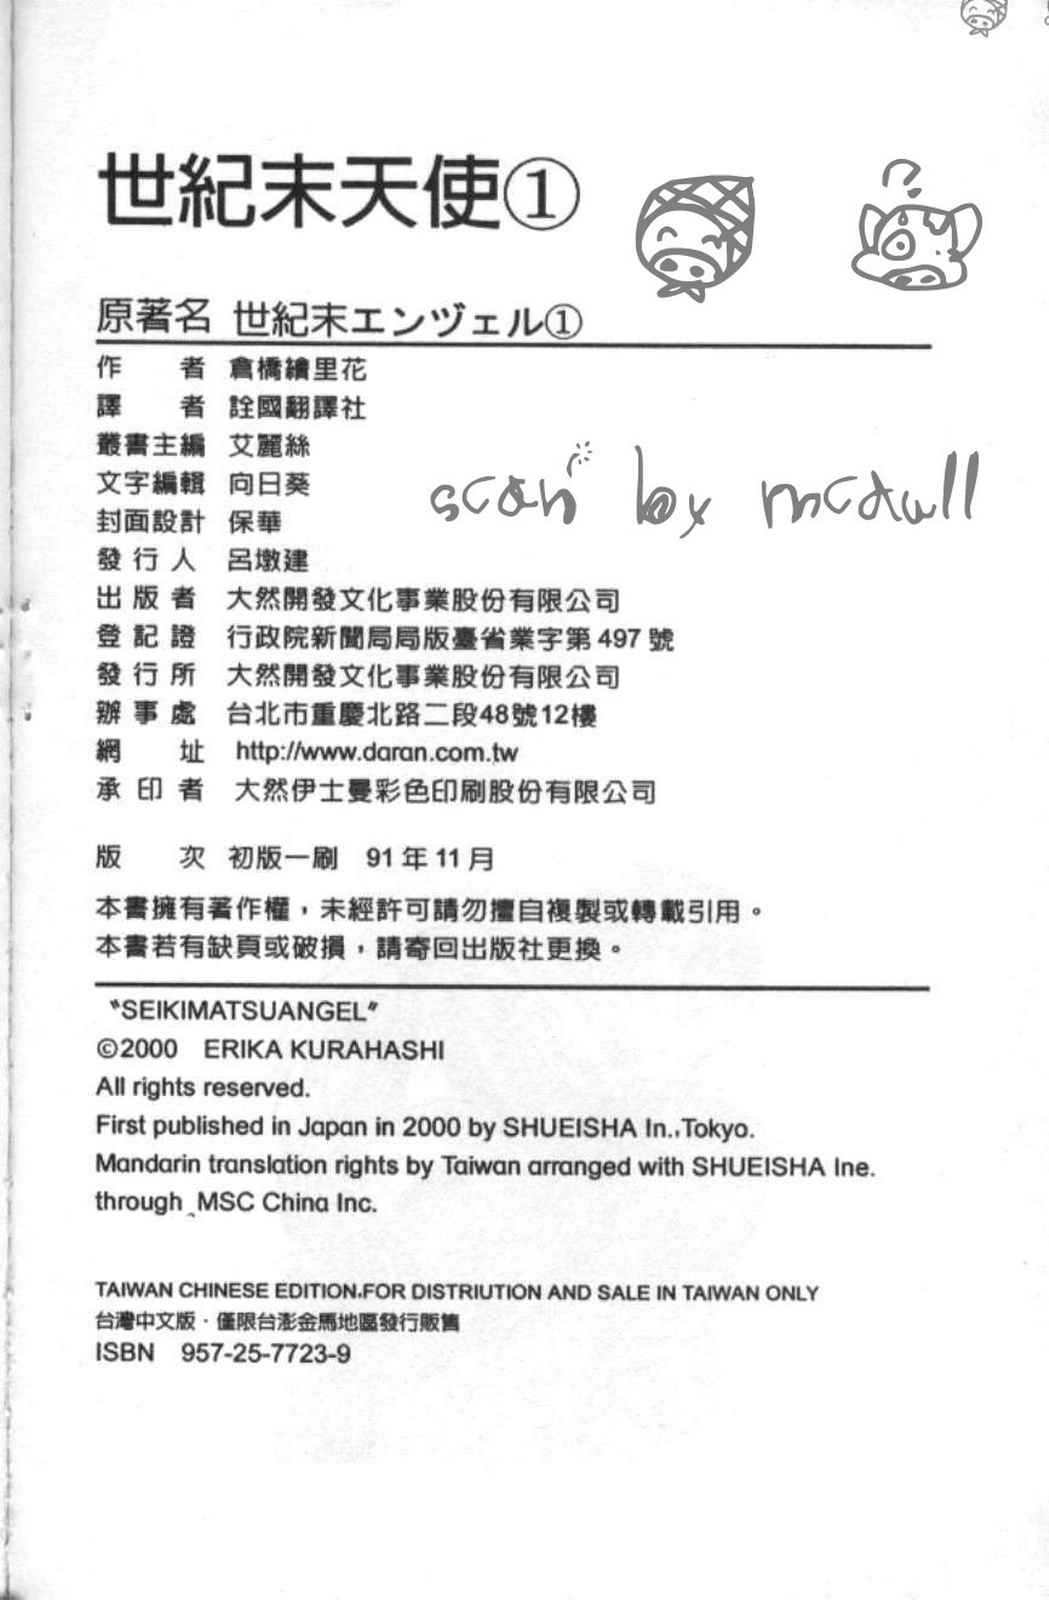 世紀末天使①
原著名 世紀末エンヅェル①
作者 倉橋繪里花
譯者 詮國翻譯社
叢書主編 艾麗絲
文字編輯 向日葵
封面設計 保華
發行人 呂墩建
出版者 大然開發文化事業股份有限公司
登記證 行政院新聞局局版臺省業字第497號
發行所 大然開發文化事業股份有限公司
辦事處 台北市重慶北路二段48號12樓
網址 http://www.daran.com.tw
承印者 大然伊士曼彩色印刷股份有限公司
scan by mcdull
版次 初版一刷 91年11月
本書擁有著作權，未經許可請勿擅自複製或轉載引用。
本書若有缺頁或破損，請寄回出版社更換。
〝SEIKIMATSUANGEL〞
©2000 ERIKA KURAHASHI
All rights reserved.
First published in Japan in 2000 by SHUEISHA In.,Tokyo.
Mandarin translation rights by Taiwan arranged with SHUEISHA Ine.
through MSC China Inc.
TAIWAN CHINESE EDITION.FOR DISTRIUTION AND SALE IN TAIWAN ONLY
台灣中文版·僅限台澎金馬地區發行販售
ISBN 957-25-7723-9